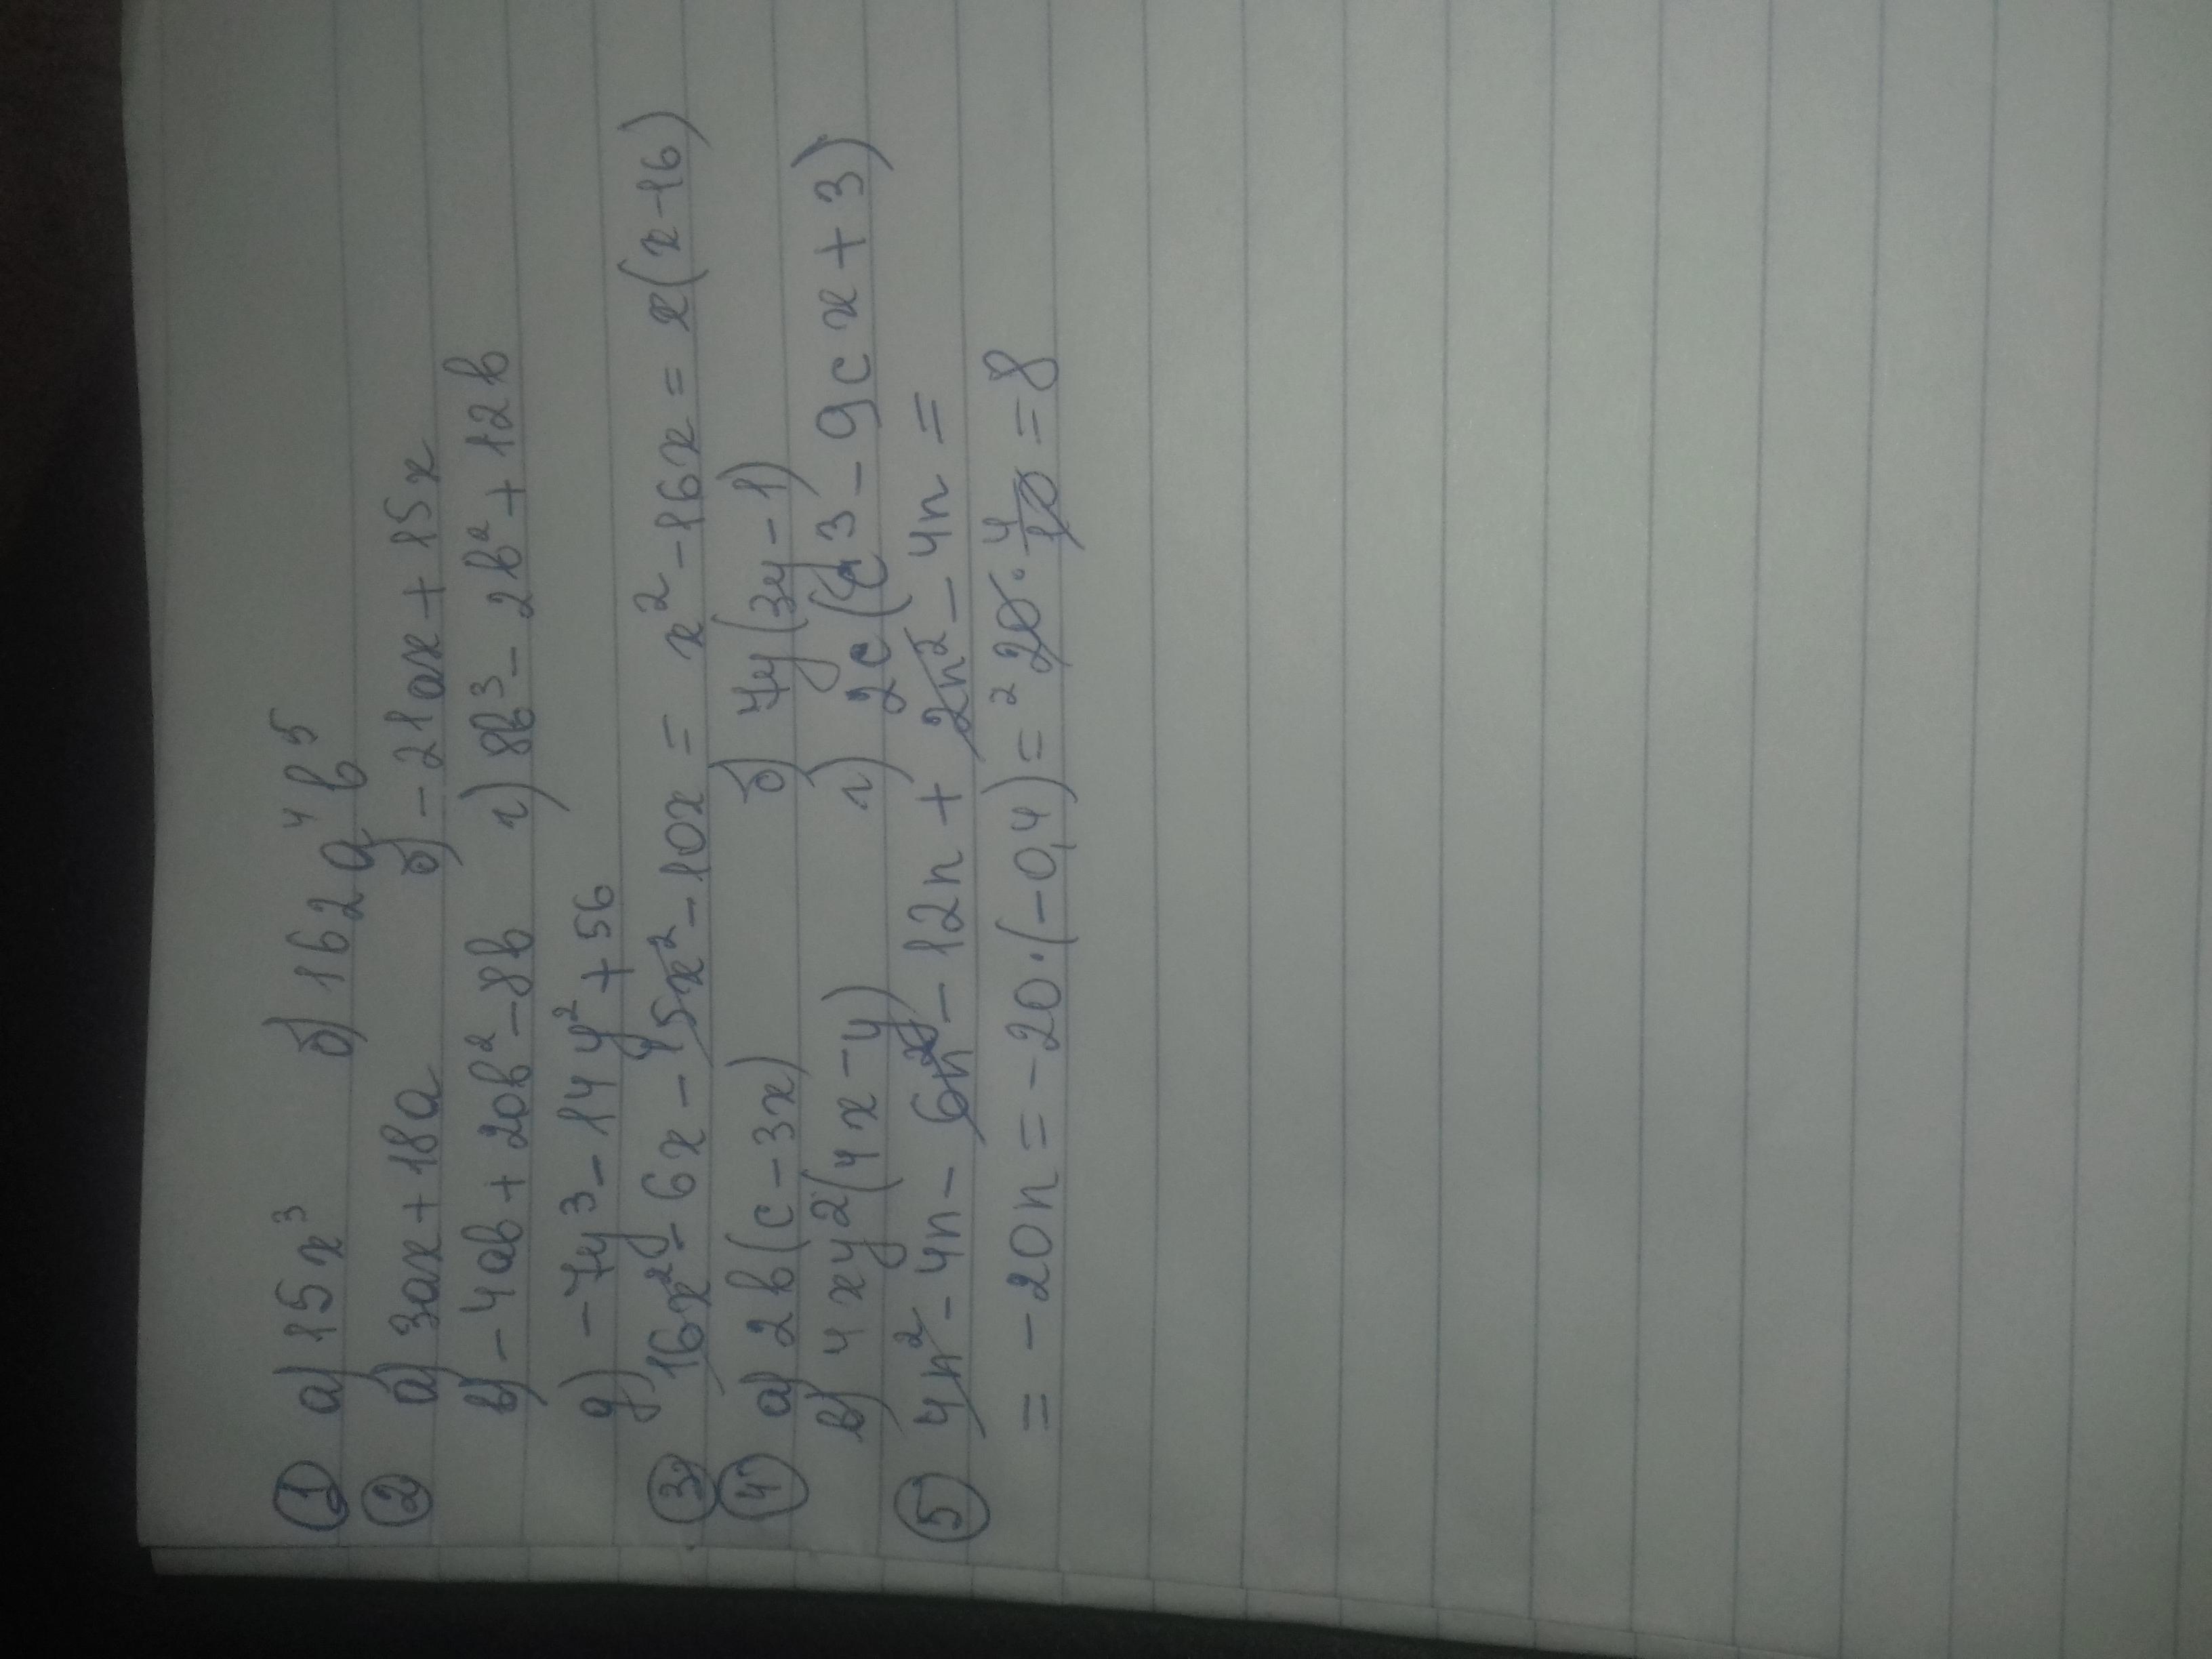 ① а) 15x³ б) 162a⁴b⁵
② а) 3ax + 18a б) -21ax + 15x
в) -4ab + 20b² - 8b г) 8b³ - 2b² + 12b
д) -7y³ - 14y² + 56
③ 16x² - 6x - 15x² - 10x = x² - 16x = x(x - 16)
④ а) 2b(c - 3x) б) 7y(3y - 1)
в) 4xy²(4x - y) г) 2c( c³ - 9cx + 3)
⑤ 4n² - 4n - 6n² - 12n + 2n² - 4n =
= -20n = -20·(-0,4) = ² 20 · 4/10 = 8